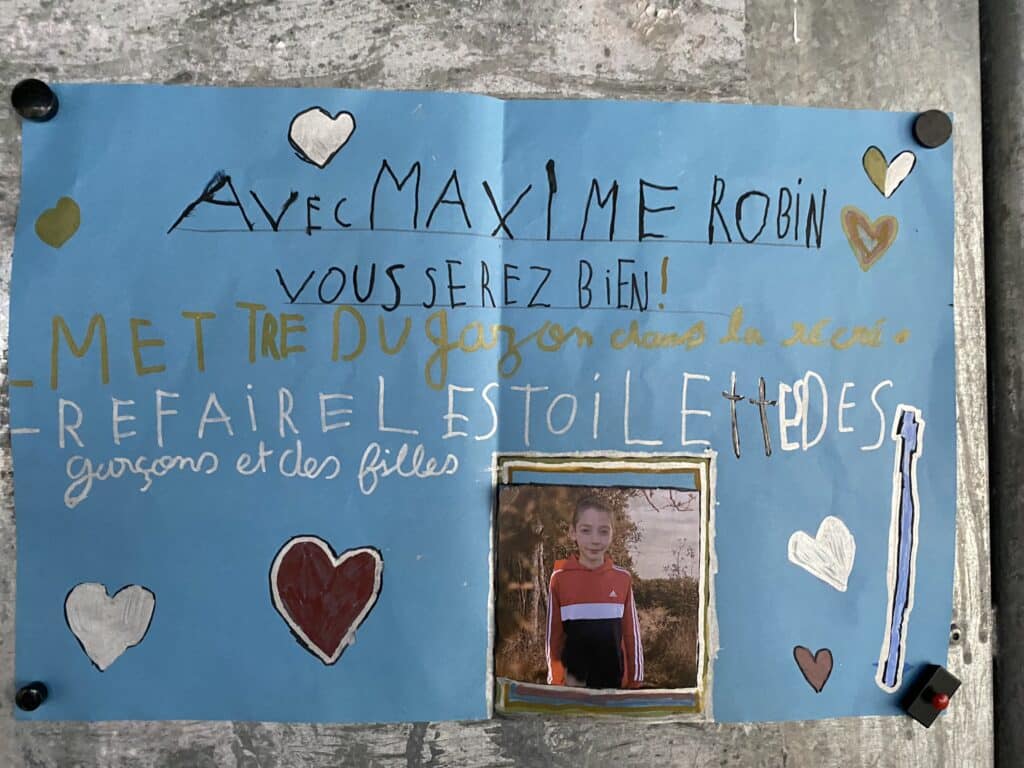 AVEC MAXIME ROBIN
VOUS SEREZ BIEN!
- METTRE DU gazon dans la récré.
- REFAIRE LES TOILETTES DES
garçons et des filles